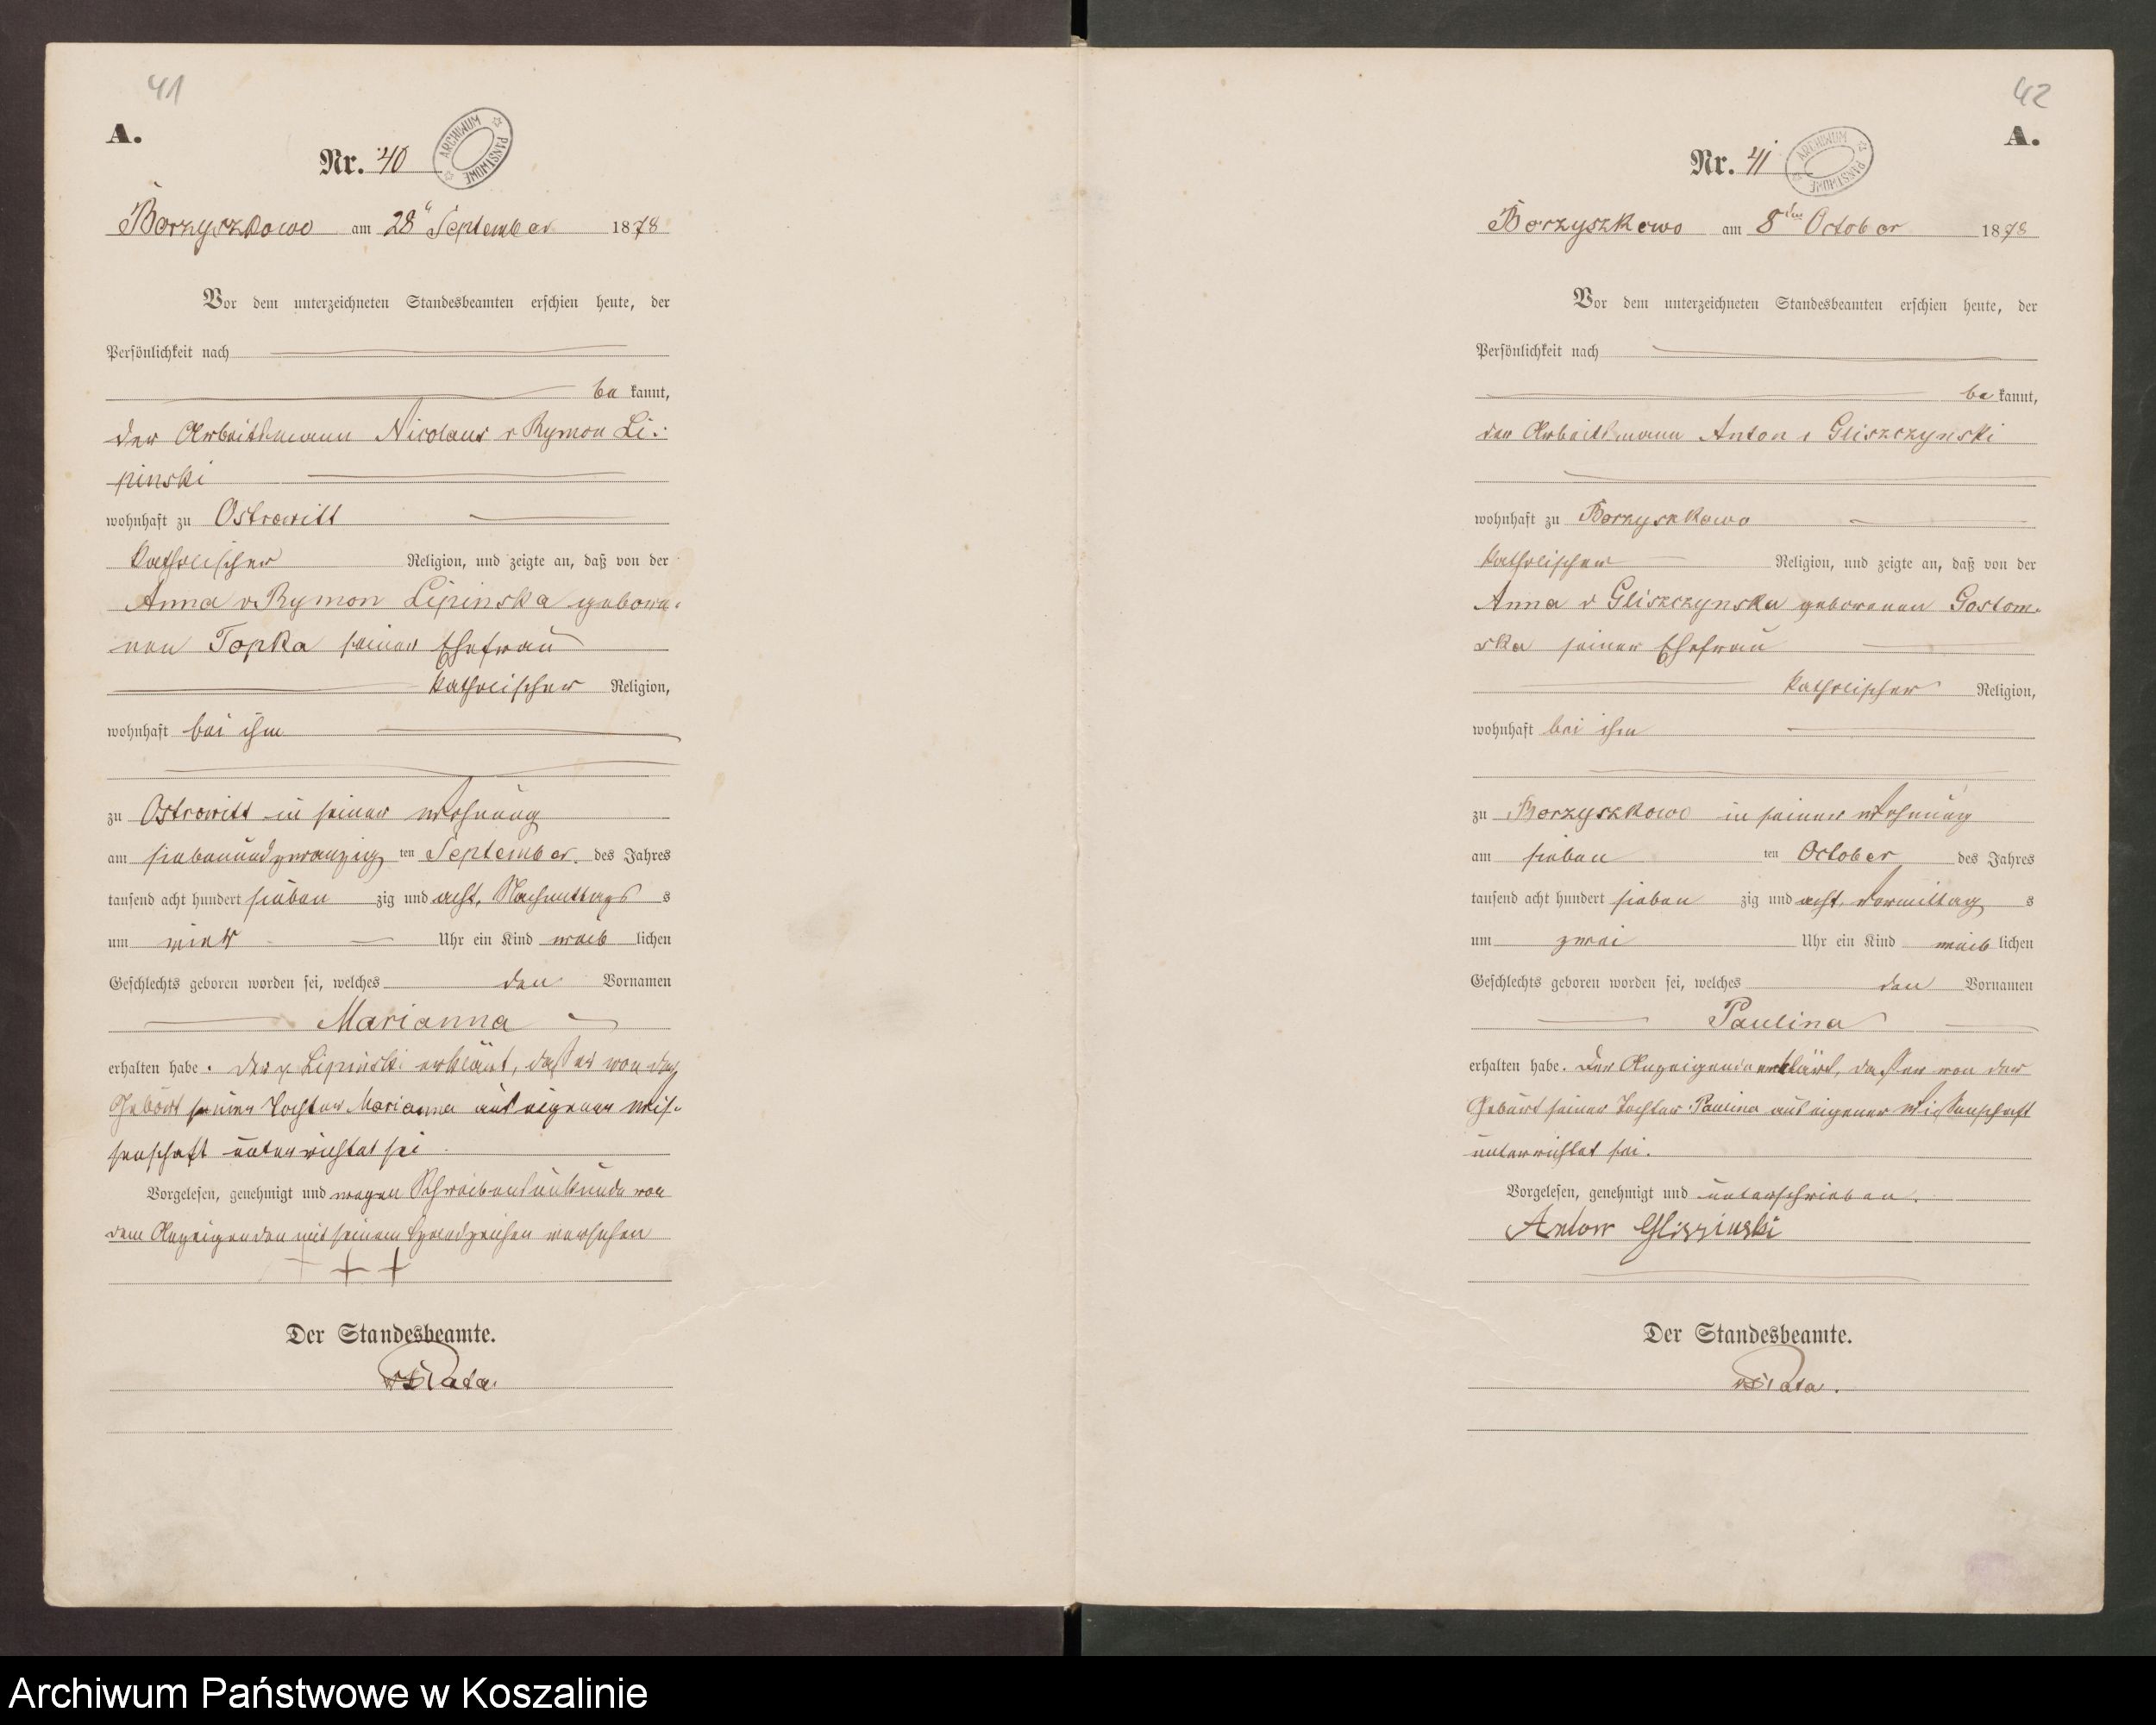 41
A.
Nr. 40
ARCHIWUM PAŃSTWOWE
Borzyszkowo am 28 September 1878
Vor dem unterzeichneten Standesbeamten erschien heute, der
Persönlichkeit nach
be kannt,
der Arbeitsmann Nicolaus v Rymon Li-
pinski
wohnhaft zu Ostrowitt
katholischer Religion, und zeigte an, daß von der
Anna v Rymon Lipinska gebore-
nen Topka seiner Ehefrau
katholischer Religion,
wohnhaft bei ihm
zu Ostrowitt in seiner Wohnung
am siebenundzwanzig ten September des Jahres
tausend acht hundert sieben zig und acht, Nachmittags s
um vier Uhr ein Kind weib lichen
Geschlechts geboren worden sei, welches den Vornamen
Marianna
erhalten habe. Der Lipinski erklärt, daß er von der
Geburt seiner Tochter Marianna aus eigener Wis-
senschaft unterrichtet sei
Vorgelesen, genehmigt und wegen Schreibensunkunde von
dem Anzeigenden mit seinem Handzeichen versehen
+ + +
Der Standesbeamte.
42
A.
Nr. 41
ARCHIWUM PAŃSTWOWE
Borzyszkowo am 8ten October 1878
Vor dem unterzeichneten Standesbeamten erschien heute, der
Persönlichkeit nach
be kannt,
der Arbeitsmann Anton v Gliszczynski
wohnhaft zu Borzyszkowo
katholischer Religion, und zeigte an, daß von der
Anna v Gliszczynska geborenen Gostom-
ska seiner Ehefrau
katholischer Religion,
wohnhaft bei ihm
zu Borzyszkowo in seiner Wohnung
am sieben ten October des Jahres
tausend acht hundert sieben zig und acht, Vormittag s
um zwei Uhr ein Kind weib lichen
Geschlechts geboren worden sei, welches den Vornamen
Paulina
erhalten habe. Der Anzeigende erklärt, daß er von der
Geburt seiner Tochter Paulina aus eigener Wissenschaft
unterrichtet sei.
Vorgelesen, genehmigt und unterschrieben.
Anton Gliszinski
Der Standesbeamte.
Archiwum Państwowe w Koszalinie